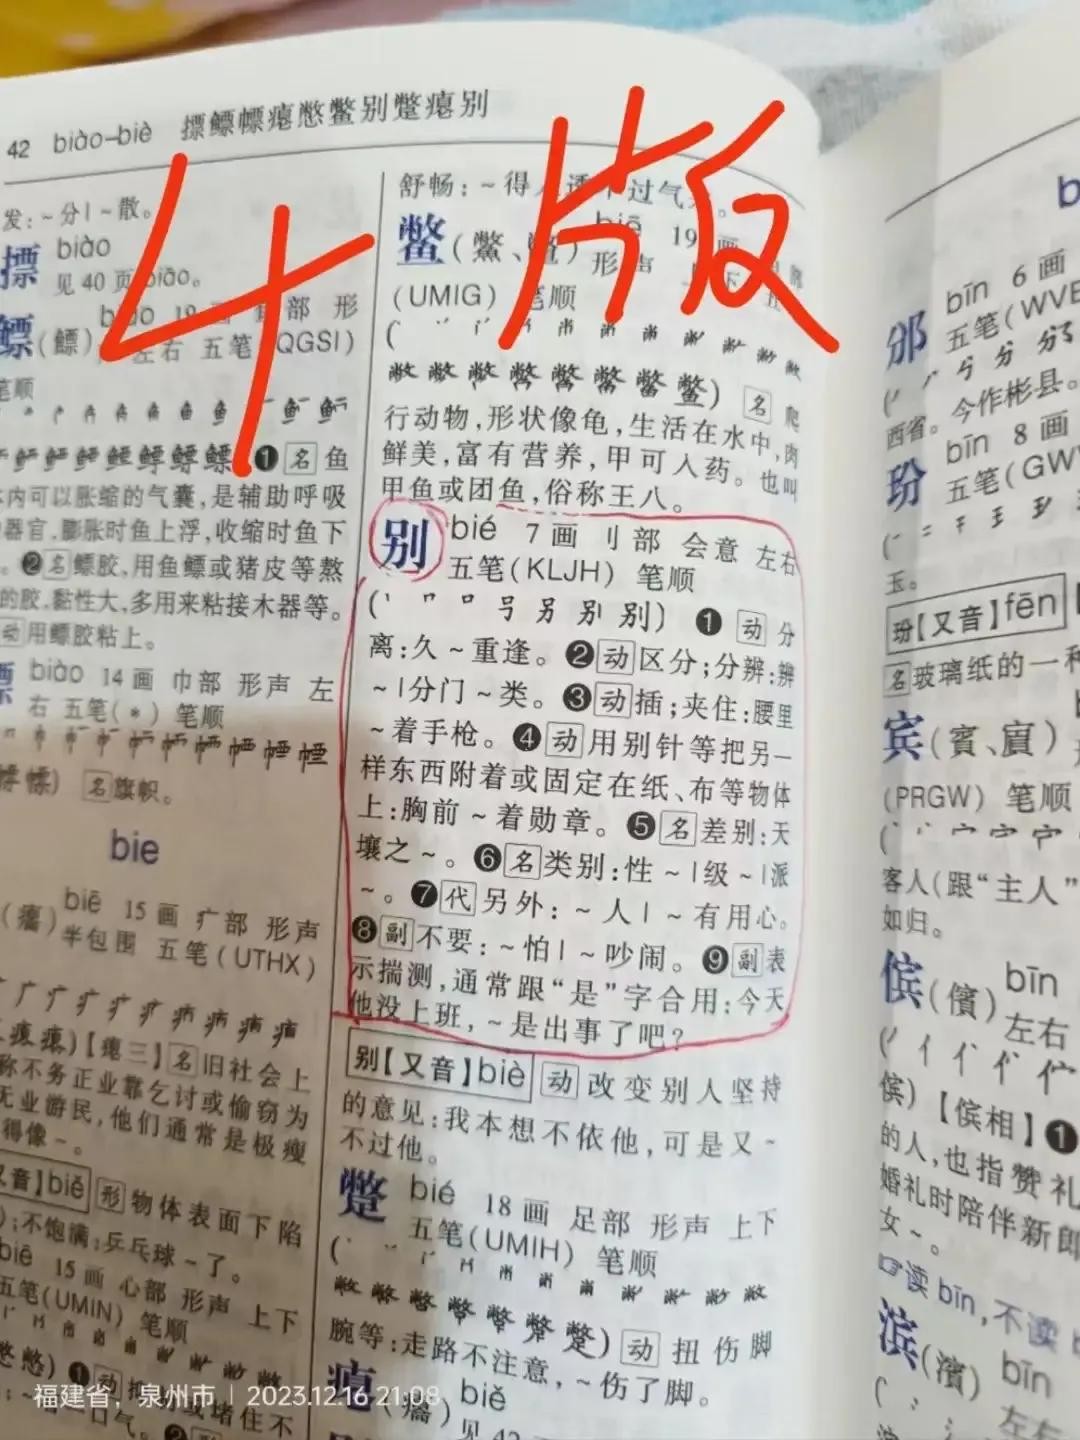 42 biào-biè 摽鳔幖瘪憋鳖别蹩瘪别
4版
发：~分|~散。
摽 biào
见 40 页 biāo。
鳔(鰾) biào 19 画 鱼部 形
左右 五笔(QGSI)
笔顺
❶ 名 鱼
体内可以胀缩的气囊，是辅助呼吸
器官，膨胀时鱼上浮，收缩时鱼下
。❷ 名 鳔胶，用鱼鳔或猪皮等熬
的胶，黏性大，多用来粘接木器等。
动 用鳔胶粘上。
biào 14 画 巾部 形声 左
右 五笔(*) 笔顺
名 旗帜。
bie
(癟) biē 15 画 疒部 形声
半包围 五笔(UTHX)
【瘪三】 名 旧社会上
称不务正业靠乞讨或偷窃为
无业游民，他们通常是极瘦
得像~。
又音】biě 形 物体表面下陷
；不饱满：乒乓球~了。
biē 15 画 心部 形声 上下
五笔(UMIN) 笔顺
❶ 动 抑 或堵住不
口气。❷
舒畅：~得 透不过气 。
鳖(鱉、鼈) biē 19 画
形声 上下 五
(UMIG) 笔顺
名 爬
行动物，形状像龟，生活在水中，肉
鲜美，富有营养，甲可入药。也叫
甲鱼或团鱼，俗称王八。
别 bié 7 画 刂部 会意 左右
五笔(KLJH) 笔顺
(丶 口 口 号 另 别 别) ❶ 动 分
离：久~重逢。❷ 动 区分；分辨：辨
~|分门~类。❸ 动 插；夹住：腰里
~着手枪。❹ 动 用别针等把另一
样东西附着或固定在纸、布等物体
上：胸前~着勋章。❺ 名 差别：天
壤之~。❻ 名 类别：性~|级~|派
~。❼ 代 另外：~人|~有用心。
❽ 副 不要：~怕|~吵闹。❾ 副 表
示揣测，通常跟“是”字合用：今天
他没上班，~是出事了吧？
别【又音】biè 动 改变别人坚持
的意见：我本想不依他，可是又~
不过他。
蹩 bié 18 画 足部 形声 上下
五笔(UMIH) 笔顺
动 扭伤脚
腕等：走路不注意，~伤了脚。
瘪(癟) biě 见 42
邠 bīn 6 画
五笔(WVB
西省。今作彬县。
玢 bīn 8 画
五笔(GWV
玉。
玢【又音】fēn
名 玻璃纸的一种
宾(賓、賔)
(PRGW) 笔顺
客人(跟“主人”
如归。
傧(儐) bīn
左右
傧)【傧相】❶
的人，也指赞礼
婚礼时陪伴新郎
女~。
☞读 bīn，不读 b
滨(濱) bīn
左右
福建省，泉州市 | 2023.12.16 21:08